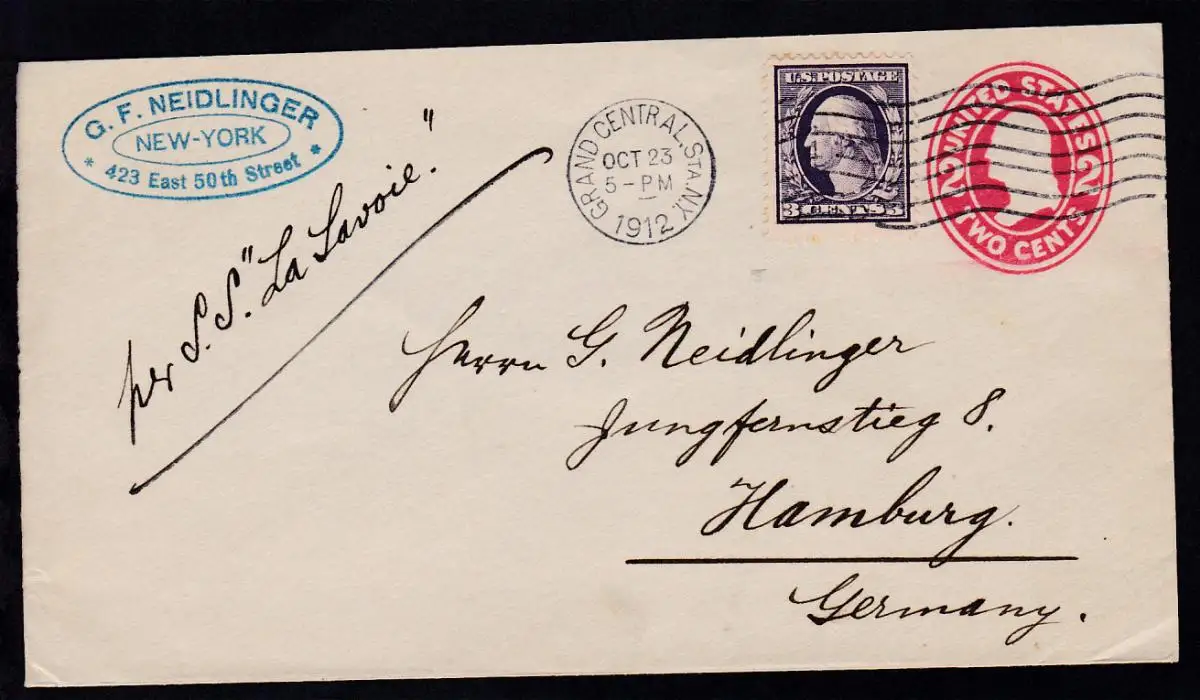 G. F. NEIDLINGER
NEW-YORK
* 423 East 50th Street *
per S.S. "La Savoie."
GRAND CENTRAL STA. N.Y.
OCT 23
5-PM
1912
U.S. POSTAGE
3 CENTS 3
UNITED STATES
2 2
TWO CENTS
Herrn G. Neidlinger
Jungfernstieg 8.
Hamburg.
Germany.